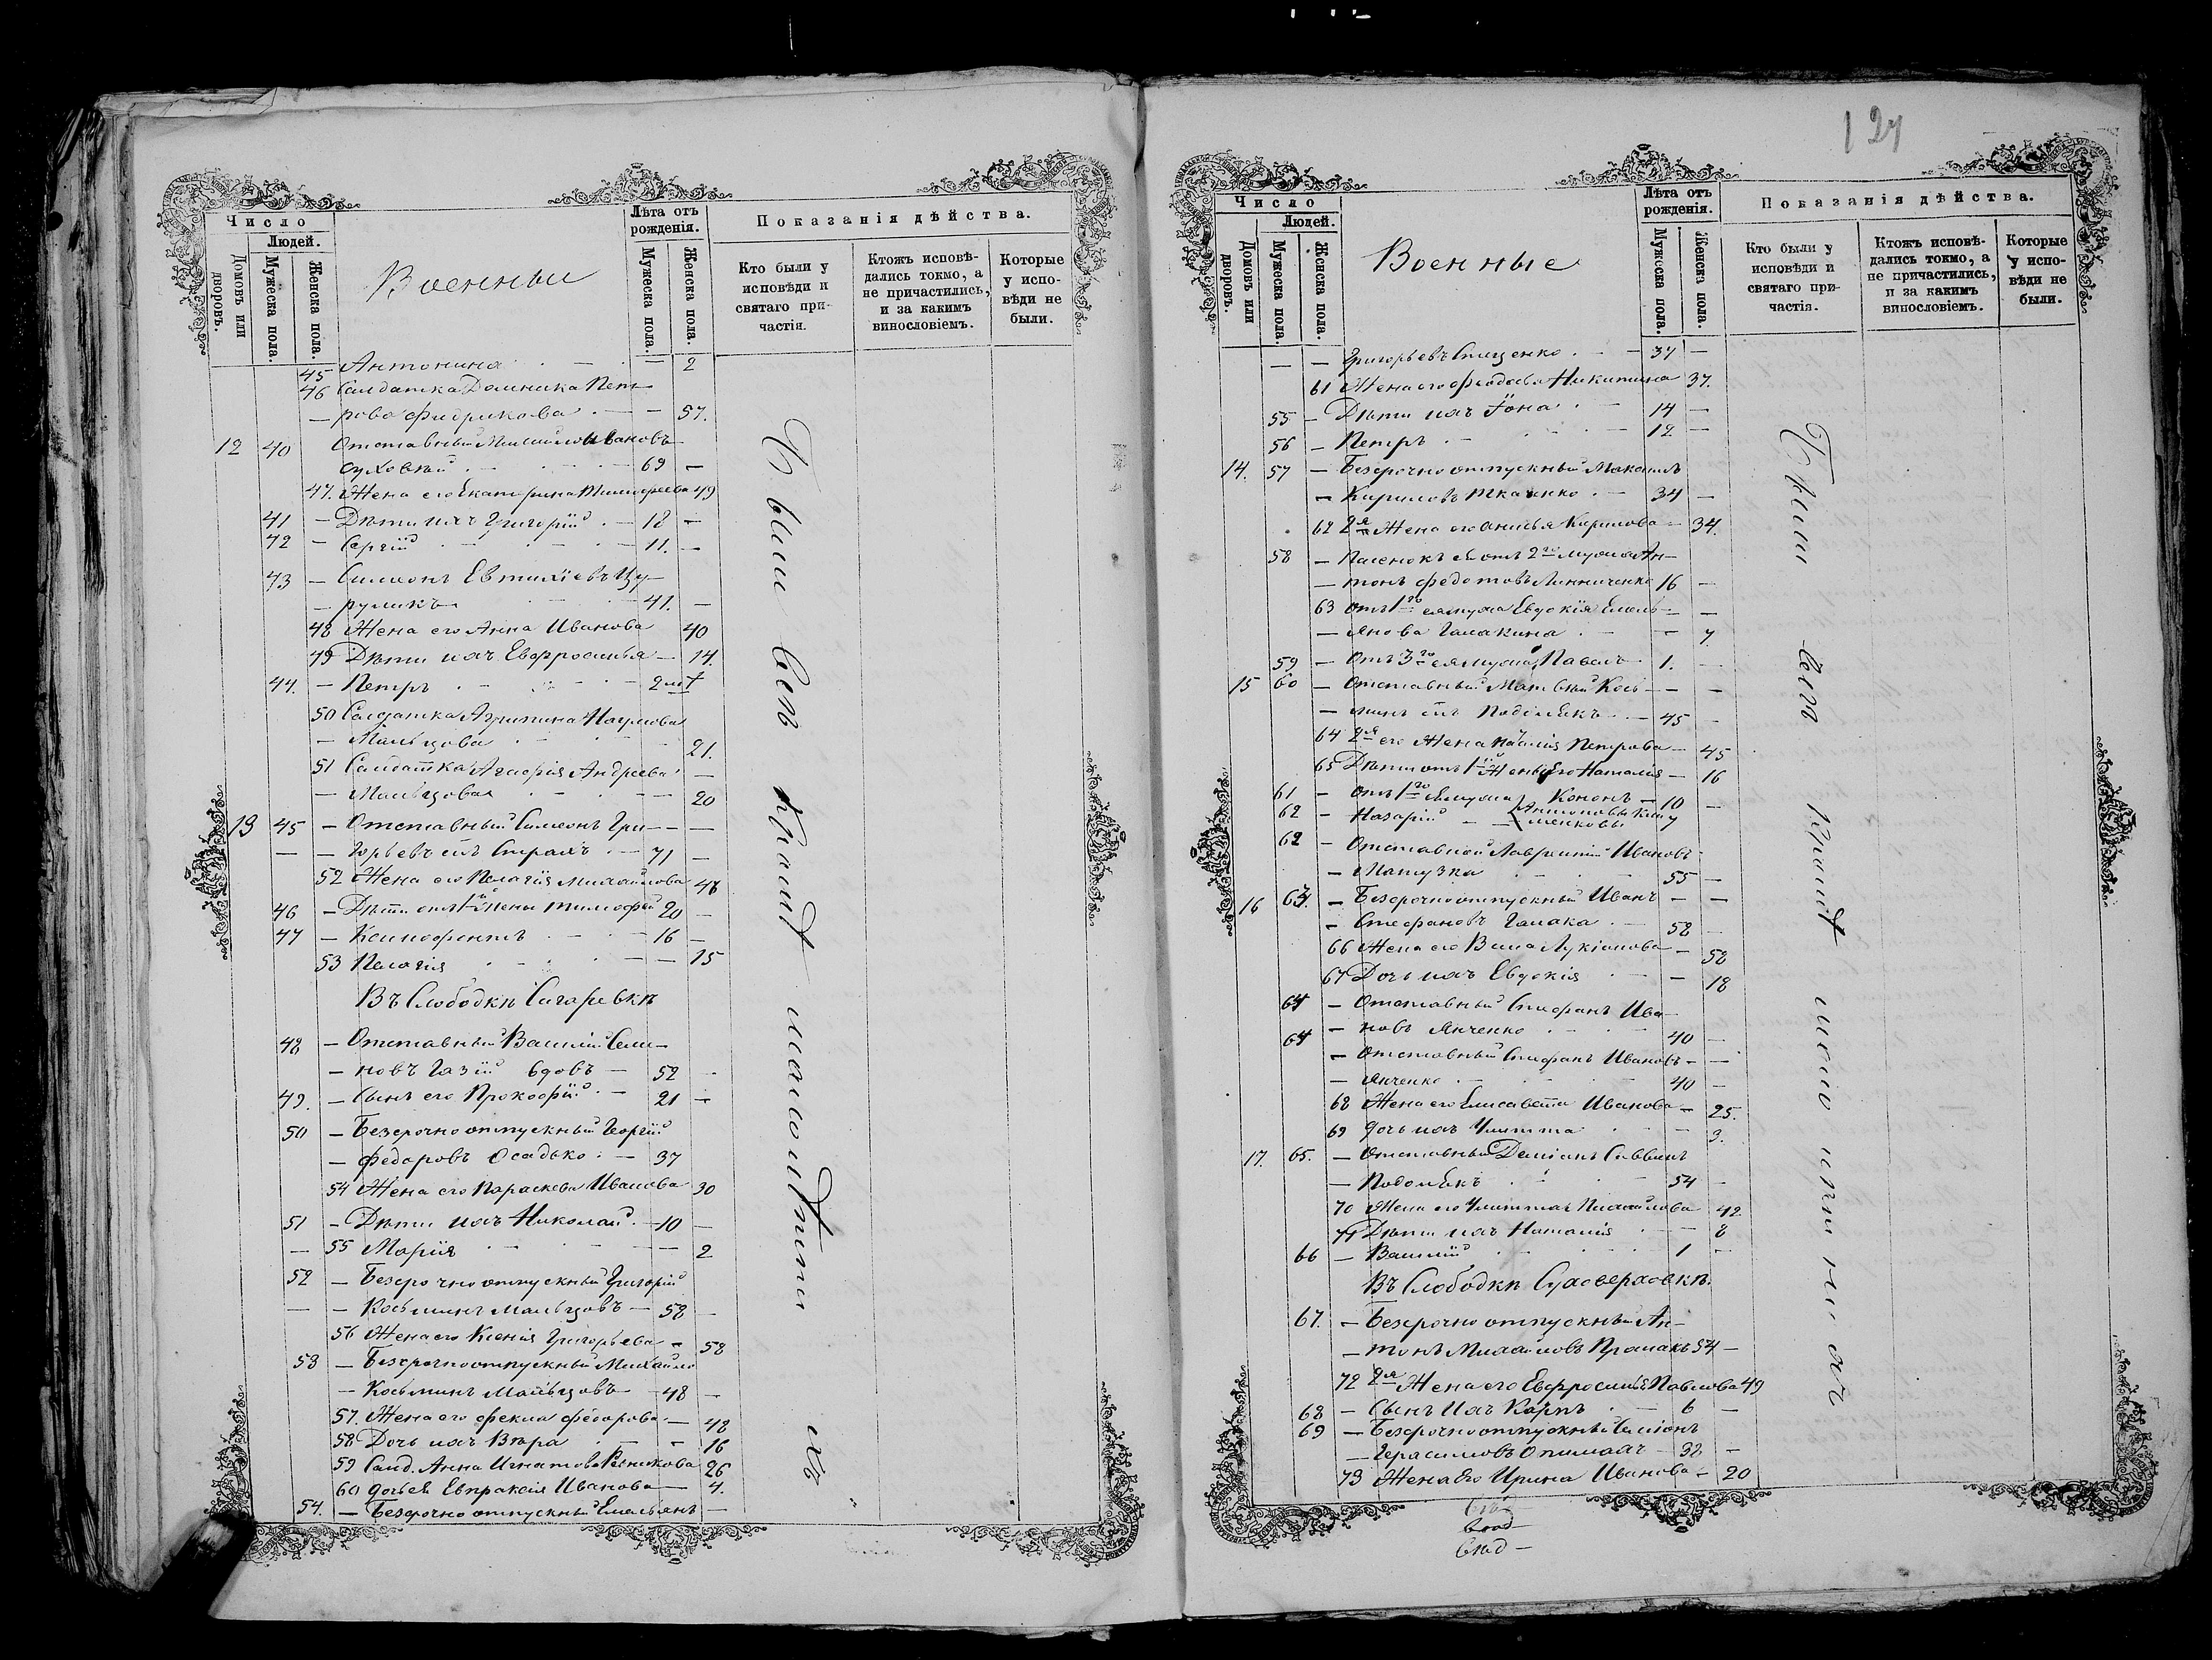 Число
Людей.
Домовъ или дворовъ.
Мужеска пола.
Женска пола.
Военные
Лѣта отъ рожденія.
Мужеска пола.
Женска пола.
Показанія дѣйства.
Кто были у исповѣди и святаго причастія.
Ктожъ исповѣдались токмо, а не причастились, и за какимъ винословіемъ.
Которые у исповѣди не были.
45 Антонина - 2
46 Салдатка Домника Пет-
- рова - 57.
12 40 Отставный Михаилъ Ивановъ
Суховый - 69 -
47. Жена его Екатерина Тимофеева 49
41 - Дѣти ихъ Григорій - 18 -
42 - Сергій - 11. -
43 - Симеонъ Евтихіевъ Цу-
- рупикъ - 41. -
48 Жена его Анна Иванова 40
49 Дѣти ихъ Евфросинья - 14.
44. - Петръ - 2
50 Салдатка Агрипина Наумова
- Мальцова - 21.
51 Салдатка Агафія Андреева -
- Мальцова - 20
13 45 - Отставный Симеонъ Гри- - -
- - горьевъ Страхъ - 71 -
52 Жена его Пелагія Михайлова 48
46 - Дѣти отъ 1й жены Тимофей 20 -
47 - Ксенофонтъ - 16 -
53 Пелагія - 15
Въ Слободкѣ Сигаревкѣ
48 - Отставный Василій Семе-
- новъ Газій вдовъ - 52 -
49. - Сынъ его Прокофій - 21 -
50 - Безсрочноотпускный Георгій
- Федоровъ Осадько - 37
54 Жена его Параскева Иванова 30
51 - Дѣти ихъ Николай - 10 -
- 55 Марія - 2
52 - Безсрочноотпускный Григорій
- - Косьминъ Мальцовъ - 58 -
56 Жена его Ксенія Григорьева - 58
53 - Безсрочноотпускный Михайло
- Косьминъ Мальцовъ - 48 -
57. Жена его Фекла Федорова - 48
58 Дочь ихъ Вѣра - 16
59 Салд. Анна Игнатова 26
60 дочь ея Евпраксія Иванова - 4.
54. - Безсрочноотпускный Емельянъ -
Были всѣ
124
Число
Людей.
Домовъ или дворовъ.
Мужеска пола.
Женска пола.
Военные
Лѣта отъ рожденія.
Мужеска пола.
Женска пола.
Показанія дѣйства.
Кто были у исповѣди и святаго причастія.
Ктожъ исповѣдались токмо, а не причастились, и за какимъ винословіемъ.
Которые у исповѣди не были.
- - Григорьевъ - 37 -
61 Жена его Феодосія Никитина 37.
55 - Дѣти ихъ Іона - 14 -
56 - Петръ - 12 -
14. 57 - Безсрочноотпускный Максимъ
- Кириловъ Ткаченко - 34 -
62 2я Жена его Анисья Кирилова - 34.
58 - Пасенокъ ея отъ 2го мужа Ан-
- тонъ Федотовъ Линниченко 16 -
63 отъ 1го ея мужа Евдокія Емель- - -
- янова Галакина - 7
59 - Отъ 3го ея мужа Павелъ 1. -
15 60 - Отставный Матвѣй Кось- - -
- минъ - 45 -
64 2я его Жена Петрова - 45
65 Дѣти отъ 1й Жены его Наталія - 16
61 - отъ 1го ея мужа Кононъ - 10 -
62 - Назарій - Антоновы 7
62 - Отставной Лаврентій Ивановъ
- - 55 -
16 63. - Безсрочноотпускный Иванъ - -
- Стефановъ Галака - 58 -
66 Жена его Васа Лукіанова - 58
67 Дочь ихъ Евдокія - 18
64 - Отставный Стефанъ Ива-
- новъ Янченко - 40 -
64 - Отставный Стефанъ Ивановъ - -
- Янченко - 40 -
68 Жена его Елисавета Иванова - 25.
69 дочь ихъ Улитта - 3.
17. 65. - Отставный Даміанъ Саввинъ
- - 54 -
70 Жена его Улитта Михайлова 42
71 Дѣти ихъ Наталія - 8
66 - Василій - 1 -
Въ Слободкѣ Суховерховкѣ.
67. - Безсрочноотпускный Ан-
- тонъ Михайловъ 54 -
72 2я Жена его Евфросинья Павлова 49
68 - Сынъ ихъ Карпъ - 6 -
69 - Безсрочноотпускный Симіонъ
- Герасимовъ 32 -
73 Жена его Ирина Иванова - 20
Были всѣ